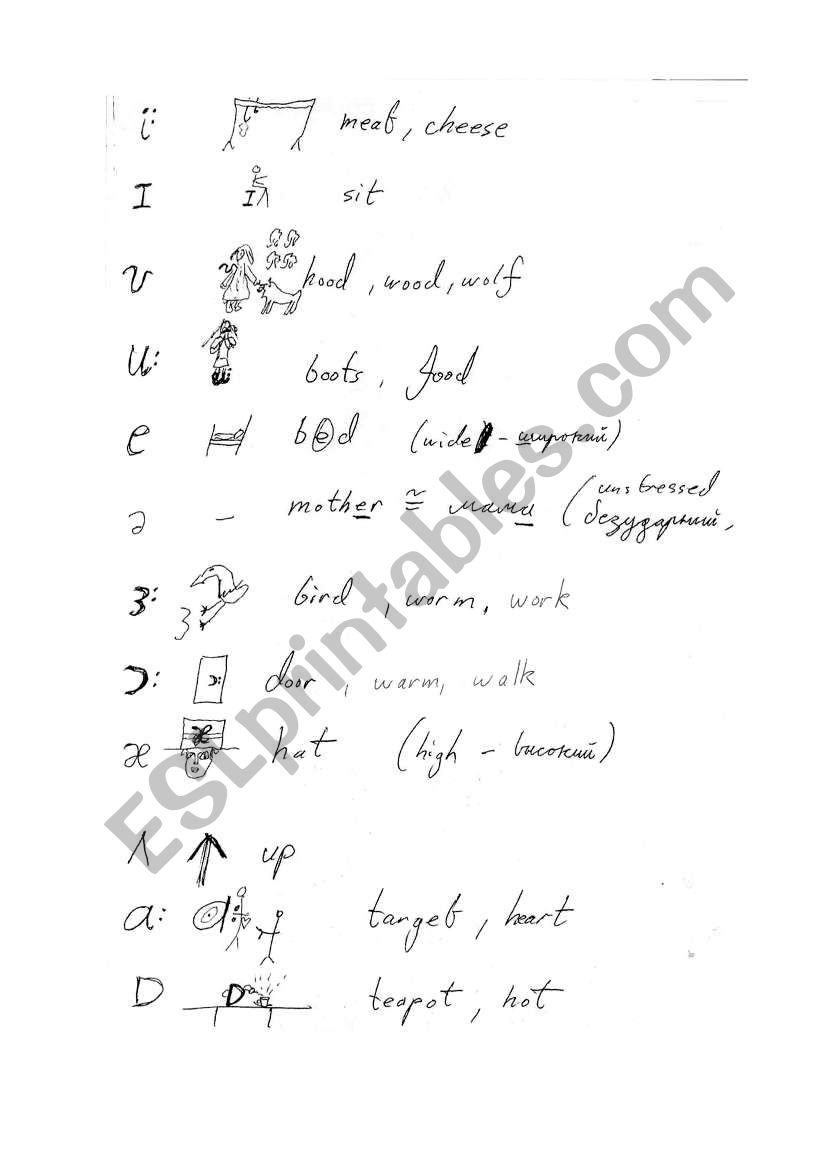 i: meat, cheese
I I sit
ʊ hood, wood, wolf
u: boots, food
e bed (wide - широкий)
ə - mother ≅ мама (unstressed
безударный,
ɜ: 3 bird, worm, work
ɔ: ɔ: door, warm, walk
æ æ hat (high - высокий)
ʌ up
a: a target, heart
D D teapot, hot
ESLprintables.com